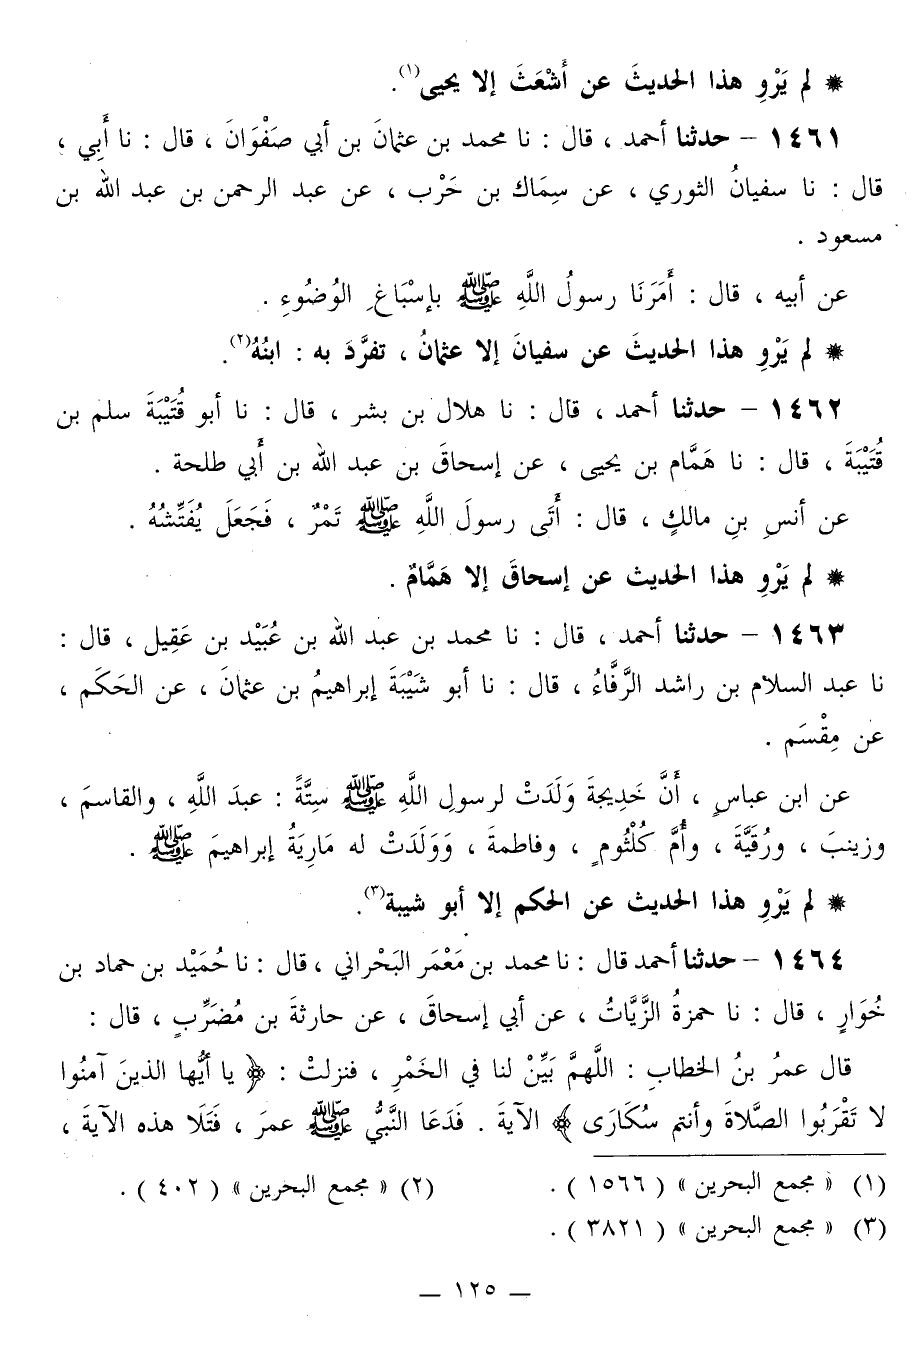 * لم يَرْوِ هذا الحديثَ عن أَشْعَثَ إلا يحيى(١).
١٤٦١ - حدثنا أحمد ، قال : نا محمد بن عثمانَ بن أبي صَفْوَانَ ، قال : نا أَبِي ،
قال : نا سفيانُ الثوري ، عن سِمَاك بن حَرْب ، عن عبد الرحمن بن عبد الله بن
مسعود .
عن أبيه ، قال : أَمَرَنَا رسولُ اللَّهِ ﷺ بإسْبَاغِ الوُضُوءِ .
* لم يَرْوِ هذا الحديثَ عن سفيانَ إلا عثمانُ ، تفرَّدَ به : ابنُهُ(٢).
١٤٦٢ - حدثنا أحمد ، قال : نا هلال بن بشر ، قال : نا أبو قُتَيْبَةَ سلم بن
قُتَيْبَةَ ، قال : نا هَمَّام بن يحيى ، عن إسحاقَ بن عبد الله بن أَبي طلحة .
عن أنسِ بنِ مالكٍ ، قال : أُتَى رسولَ اللَّهِ ﷺ تَمْرٌ ، فَجَعَلَ يُفَتِّشُهُ .
* لم يَرْوِ هذا الحديث عن إسحاقَ إلا هَمَّامٌ .
١٤٦٣ - حدثنا أحمد ، قال : نا محمد بن عبد الله بن عُبَيْد بن عَقِيل ، قال :
نا عبد السلام بن راشد الرَّفَّاءُ ، قال : نا أبو شَيْبَةَ إبراهيمُ بن عثمانَ ، عن الحَكَم ،
عن مِقْسَم .
عن ابن عباسٍ ، أَنَّ خَدِيجةَ وَلَدَتْ لرسولِ اللَّهِ ﷺ سِتَّةً : عبدَ اللَّهِ ، والقاسمَ ،
وزينبَ ، ورُقَيَّةَ ، وأُمَّ كُلْثُومٍ ، وفاطمةَ ، وَوَلَدَتْ له مَارِيَةُ إبراهيمَ ﷺ .
* لم يَرْوِ هذا الحديث عن الحكم إلا أبو شيبة(٣).
١٤٦٤ - حدثنا أحمد قال : نا محمد بن مَعْمَر البَحْراني ، قال : نا حُمَيْد بن حماد بن
خُوَارٍ ، قال : نا حمزةُ الزَّيَّاتُ ، عن أبي إسحاقَ ، عن حارثةَ بن مُضَرِّبٍ ، قال :
قال عمرُ بنُ الخطابِ : اللَّهمَّ بَيِّنْ لنا في الخَمْرِ ، فنزلتْ : ﴿ يا أيُّها الذينَ آمنُوا
لا تَقْرَبُوا الصَّلاةَ وأنتم سُكَارَى ﴾ الآيةَ . فَدَعَا النَّبيُّ ﷺ عمرَ ، فَتَلَا هذه الآيةَ ،
(١) « مجمع البحرين » ( ١٥٦٦ ) . (٢) « مجمع البحرين » ( ٤٠٢ ) .
(٣) « مجمع البحرين » ( ٣٨٢١ ) .
— ١٢٥ —